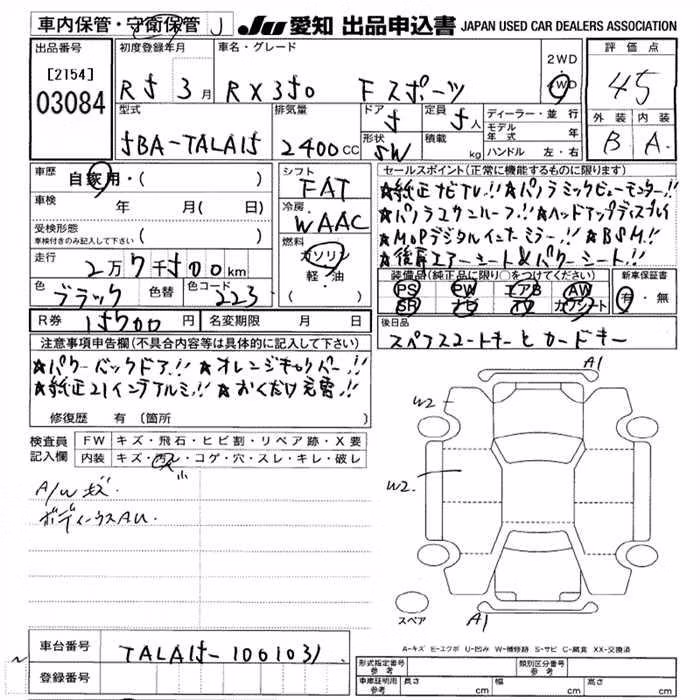 車内保管・守衛保管 J JU 愛知 出品申込書 JAPAN USED CAR DEALERS ASSOCIATION
出品番号
[2154]
03084
初度登録年月
R5 3月
車名・グレード
RX350 Fスポーツ
2WD
4WD
評価点
4.5
外装 内装
B A
型式
5BA-TALA15
排気量
2400CC
ドア
5
形状
SW
定員
5人
積載
kg
ディーラー・並行
モデル年式 年
ハンドル 左・右
車歴
自家用・( )
車検 年 月( 日)
受検形態
車検付きのみ記入して下さい ( )
走行
2万7千500km
色
ブラック
色替
色コード
223
R券 15700円
名変期限 月 日
シフト
FAT
冷房
WAAC
燃料
ガソリン
軽・油
セールスポイント(正常に機能するものに限ります)
★純正ナビTV!!★パノラミックビューモニター!!
★パノラマサンルーフ!!★ヘッドアップディスプレイ
★MOPデジタルインナーミラー!!★BSM!!
★後席エアーシート&パワーシート!!
装備品(純正品に限り○をつけてください)
PS PW エアB AW
SR ナビ TV カワシート
新車保証書
有・無
後日品
スペアスマートキーとカードキー
注意事項申告欄(不具合内容等は具体的に記入して下さい)
★パワーバックドア!!★オレンジキャリパー!!
★純正21インチアルミ!!★おくだけ充電!!
修復歴 有 〔箇所 〕
検査員
記入欄
FW キズ・飛石・ヒビ割・リペア跡・X要
内装 キズ・汚レ・コゲ・穴・スレ・キレ・破レ
小
A/Wキズ.
ボディーウスAU.
A1
W2
W2
A1
スペア
A-キズ E-エクボ U-凹み W-補修跡 S-サビ C-腐食 XX-交換済
車台番号
TALA15-1001031
登録番号
形式指定番号
参考
類別区分番号
参考
車庫証明用
参考
長さ cm 幅 cm 高さ cm